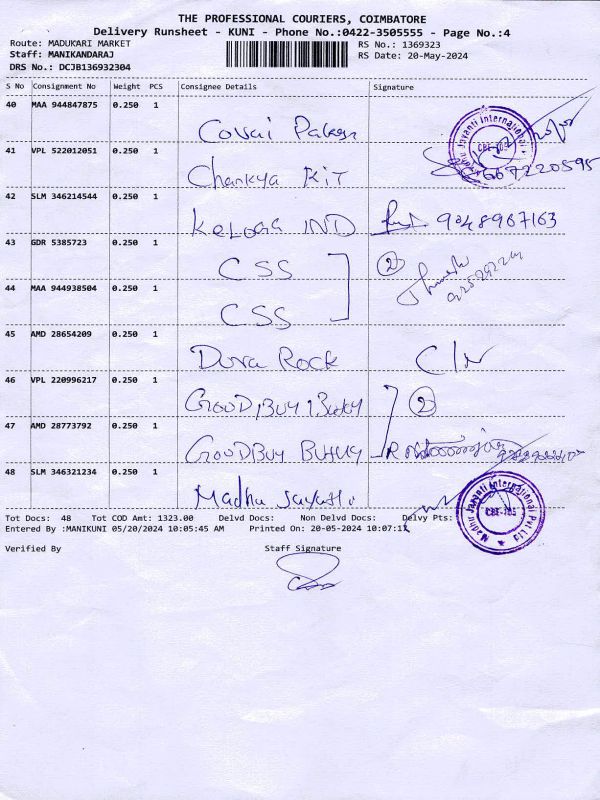 THE PROFESSIONAL COURIERS, COIMBATORE
Delivery Runsheet - KUNI - Phone No.:0422-3505555 - Page No.:4
Route: MADUKARI MARKET RS No.: 1369323
Staff: MANIKANDARAJ RS Date: 20-May-2024
DRS No.: DCJB136932304
S No Consignment No Weight PCS Consignee Details Signature
40 MAA 944847875 0.250 1
Covai
Madhu Jayanti International CBE-105
41 VPL 522012051 0.250 1
Chankya KIT
42 SLM 346214544 0.250 1
KELOGG IND 9048967163
43 GDR 5385723 0.250 1
CSS 2
44 MAA 944938504 0.250 1
CSS
45 AMD 28654209 0.250 1
Dura Rock
46 VPL 220996217 0.250 1
GOOD BUY 2
47 AMD 28773792 0.250 1
GOODBUY
48 SLM 346321234 0.250 1
Madhu Jayanti
Madhu Jayanti International Pvt Ltd CBE-105
Tot Docs: 48 Tot COD Amt: 1323.00 Delvd Docs: Non Delvd Docs: Delvy Pts:
Entered By :MANIKUNI 05/20/2024 10:05:45 AM Printed On: 20-05-2024 10:07:17
Verified By Staff Signature